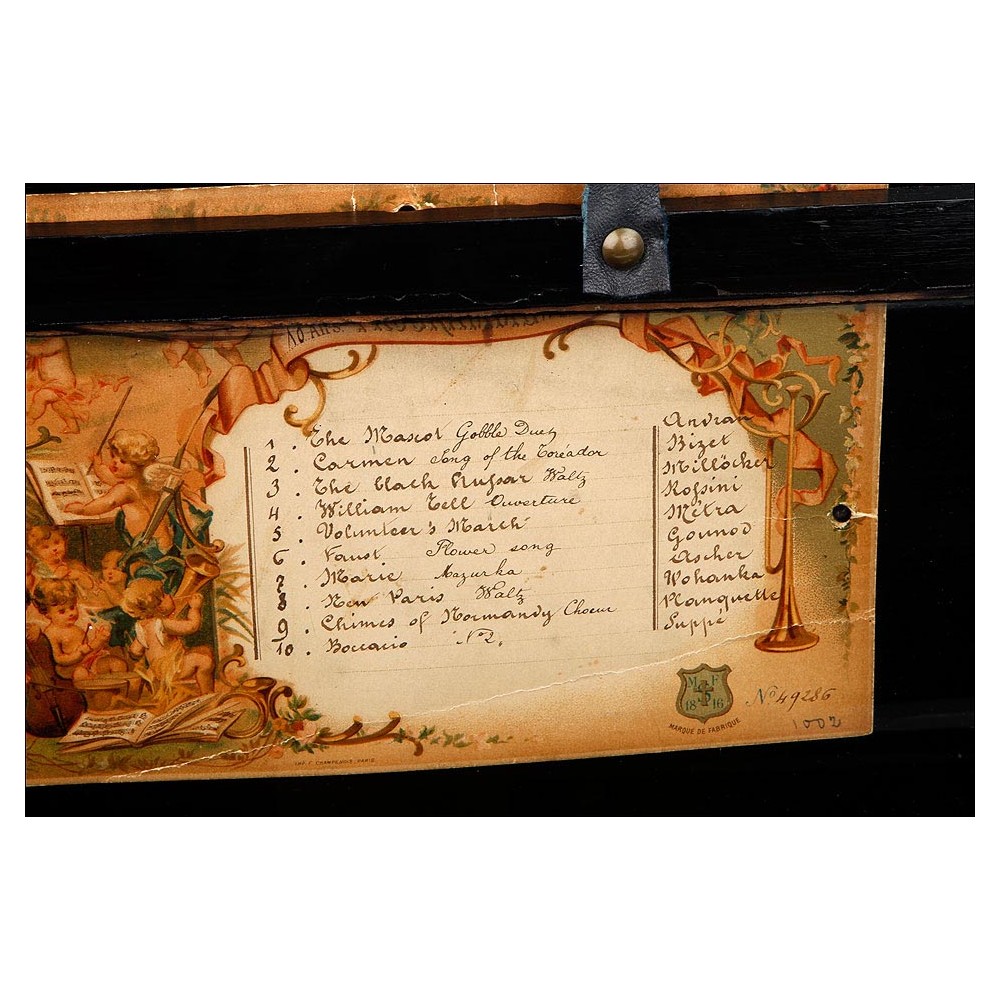 10 Airs
1. The Mascot Gobble Duetz Andran
2. Carmen Song of the Toréador Bizet
3. The black Hussar Waltz Millöcker
4. William Tell Ouverture Rossini
5. Volunteer's March Métra
6. Faust Flower song Gounod
7. Marie Mazurka Ascher
8. New Paris Waltz Wohanka
9. Chimes of Normandy Choeur Planquette
10. Boccacio Nº2. Suppé
M F
18 16
MARQUE DE FABRIQUE
Nº 49286
1002
IMP. F. CHAMPENOIS, PARIS